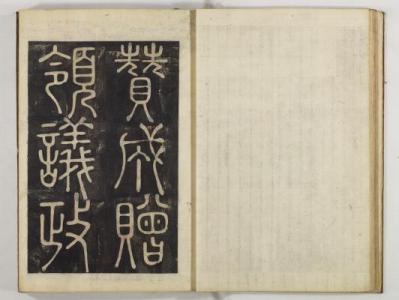 贊成贈
領議政